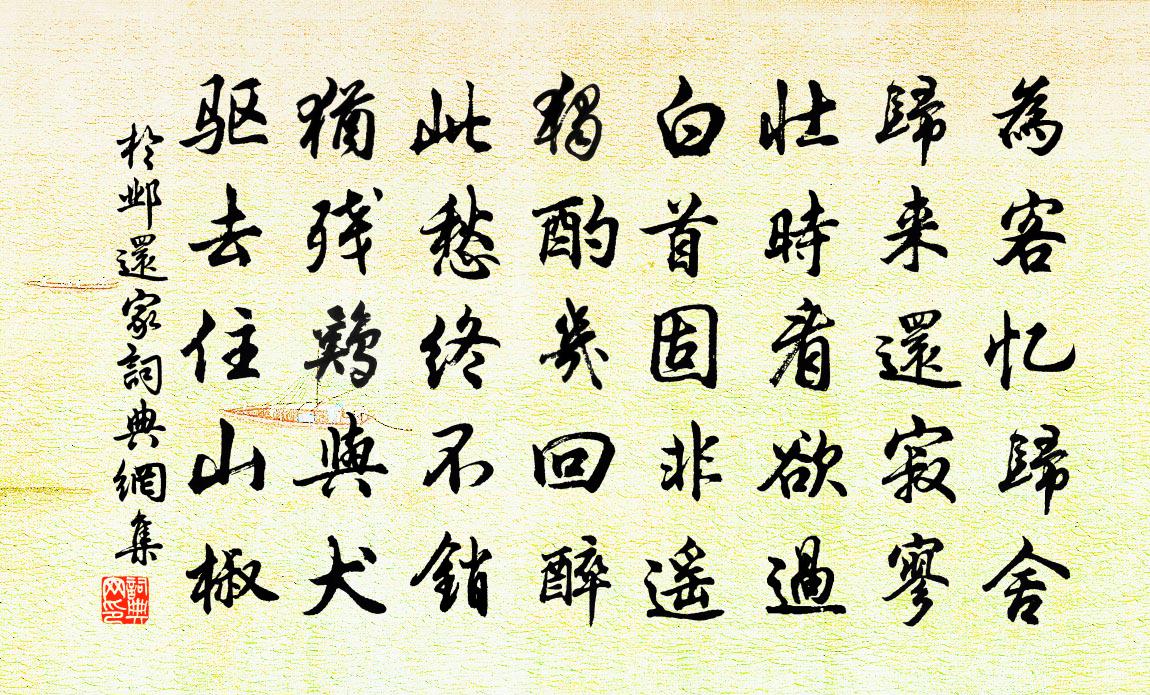 為客忆歸舍
歸来還寂寥
壮時看欲過
白首固非遥
獨酌幾回醉
此愁終不銷
猶残鷄與犬
驱去住山椒
於邺還家詞典網集
詞典网印